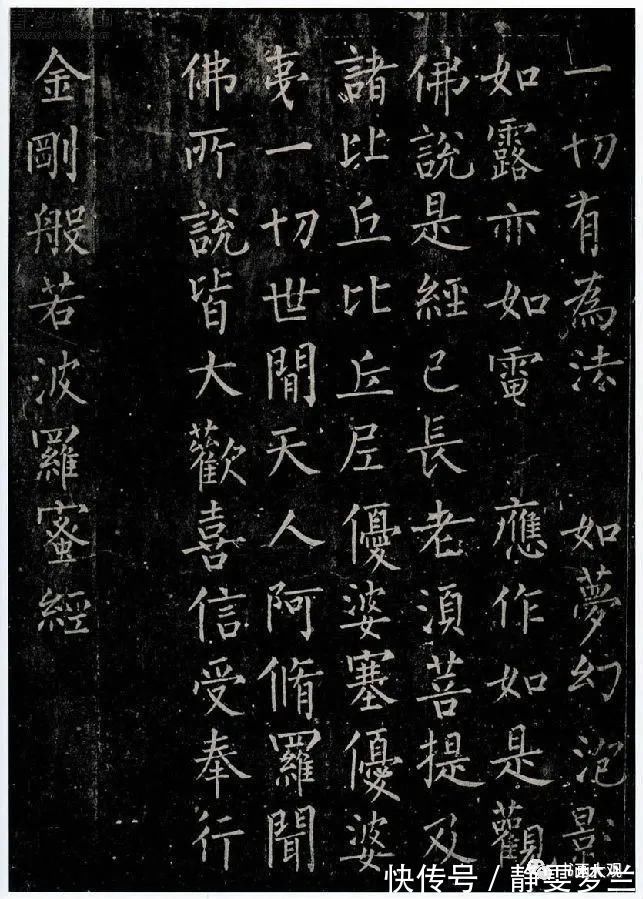 一切有為法 如夢幻泡影
如露亦如電 應作如是觀
佛說是經已長老須菩提及
諸比丘比丘尼優婆塞優婆
夷一切世間天人阿脩羅聞
佛所說皆大歡喜信受奉行
金剛般若波羅蜜經
书画大观
快传号 /